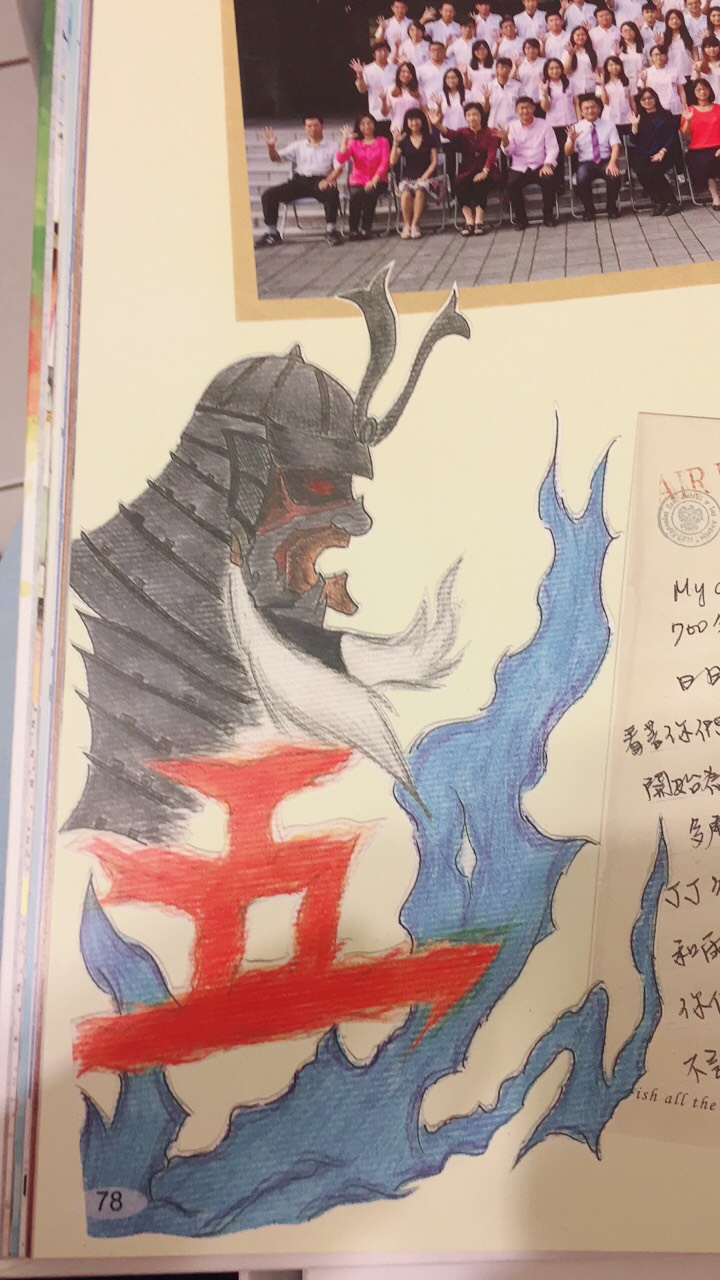 五
AIR
My
700
日日
看著你們
開始為
多
JJ
和
你
不
ish all the
78